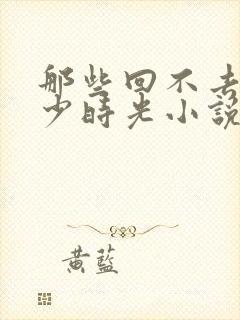 那些回不去
少時光小說
黃藍